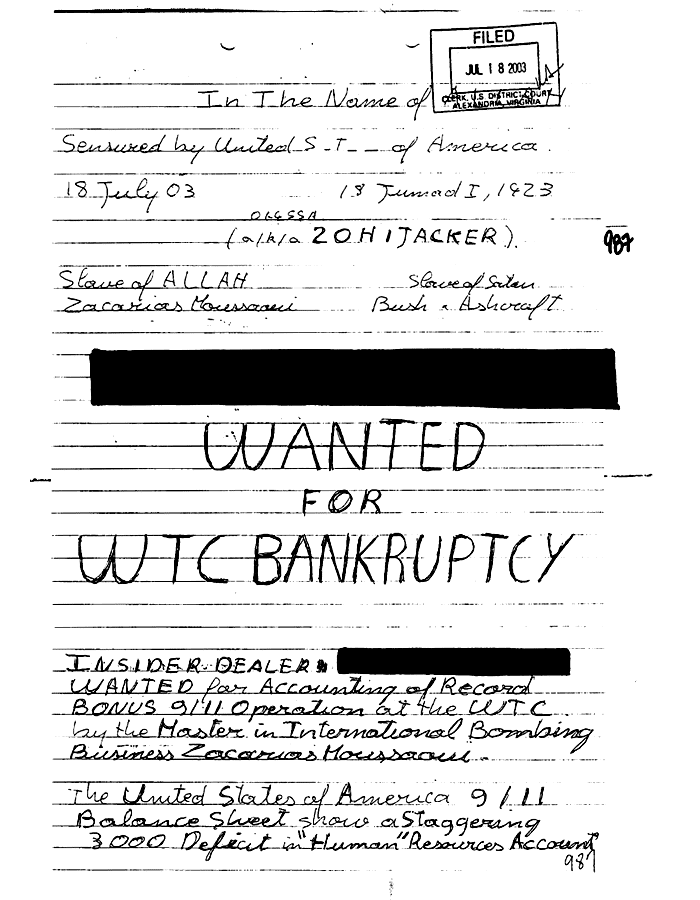 FILED
JUL 18 2003
CLERK, U.S. DISTRICT COURT
ALEXANDRIA, VIRGINIA
In The Name of
Sensured by United S_T__ of America.
18 July 03 18 Jumad I, 1423
(a/k/a 20HIJACKER).
987
Slave of ALLAH Slave of Satan
Zacarias Moussaoui Bush & Ashcraft
WANTED
FOR
WTC BANKRUPTCY
INSIDER DEALER
WANTED for Accounting of Record
BONUS 9/11 Operation at the WTC
by the Master in International Bombing
Business Zacarias Moussaoui.
The United States of America 9/11
Balance Sheet show a Staggering
3000 Deficit in "Human" Resources Account
987